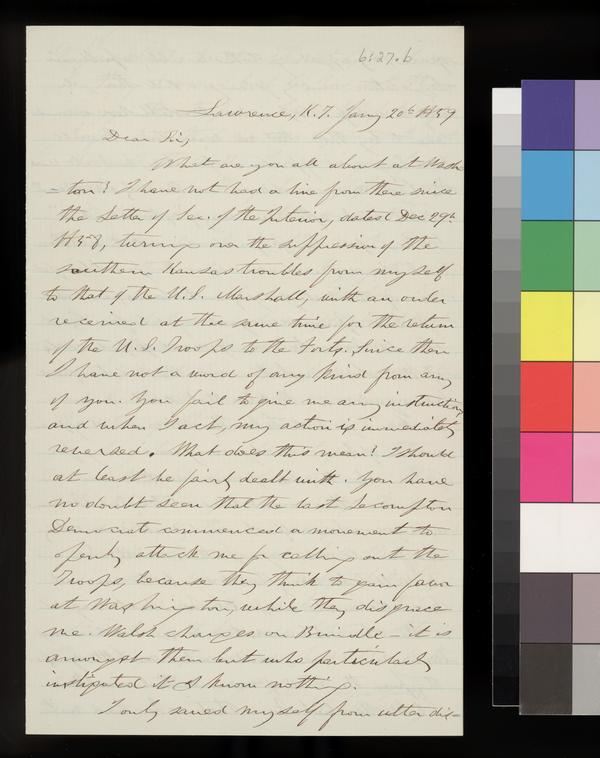 6:27.6
Lawrence, K.T. Jany 20th 1859
Dear Sir,
What are you all about at Wash-
=ton? I have not had a line from there since
the Letter of Sec. of the Interior, dated Dec 29th
1858, turning over the suppression of the
southern Kansas troubles from myself
to that of the U.S. Marshall, with an order
received at the same time for the return
of the U.S. Troops to the Forts. Since then
I have not a word of any kind from any
of you. You fail to give me any instructions
and when I act, my action is immediately
reversed. What does this mean? I should
at least be fairly dealt with. You have
no doubt seen that the last Lecompton
Democrats commenced a movement to
openly attack me for calling out the
Troops, because they think to gain favor
at Washington, while they disgrace
me. Walsh charges on Brindle – it is
amongst them but who particularly
instigated it I know nothing.
I only saved myself from utter dis=